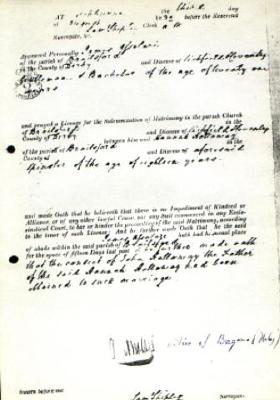 AT the Third day
of 18 before the Reverend
Law Shipley Clerk
Surrogate, &c.
Appeared Personally James
of the parish of Brailsford in
the County of Derby and Diocese of Lichfield & Coventry
Gentleman a Bachelor of the age of twenty one
years
and prayed a Licence for the Solemnization of Matrimony in the parish Church
of Brailsford in the
County of Derby and Diocese of Lichfield & Coventry
between him and Hannah Holloway
of the parish of Brailsford in the
County of and Diocese of aforesaid
Spinster of the age of eighteen years.
and made Oath that he believeth that there is no Impediment of Kindred or
Alliance, or of any other lawful Cause, nor any Suit commenced in any Eccle-
siastical Court, to bar or hinder the proceeding of the said Matrimony, according
to the tenor of such Licence; And he further made Oath that he the said
James hath had his usual place
of abode within the said parish of Brailsford
for the space of fifteen Days last past and further made oath
that the consent of John Holloway the Father
of the said Hannah Holloway had been
obtained to such marriage.
of
Sworn before me
Law Shipley
Surrogate.